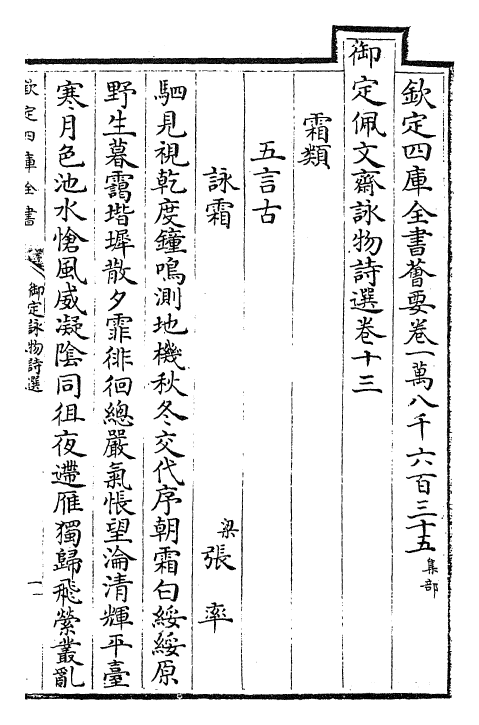 欽定四庫全書薈要卷一萬八千六百三十五集部
御定佩文齋詠物詩選卷十三
霜類
五言古
詠霜 梁張率
駟見視乾度鐘鳴測地機秋冬交代序朝霜白綏綏原
野生暮靄堦墀散夕霏徘徊總嚴氣悵望淪清輝平臺
寒月色池水愴風威凝陰同徂夜遰雁獨歸飛縈叢亂
欽定四庫全書
御定詠物詩選
一